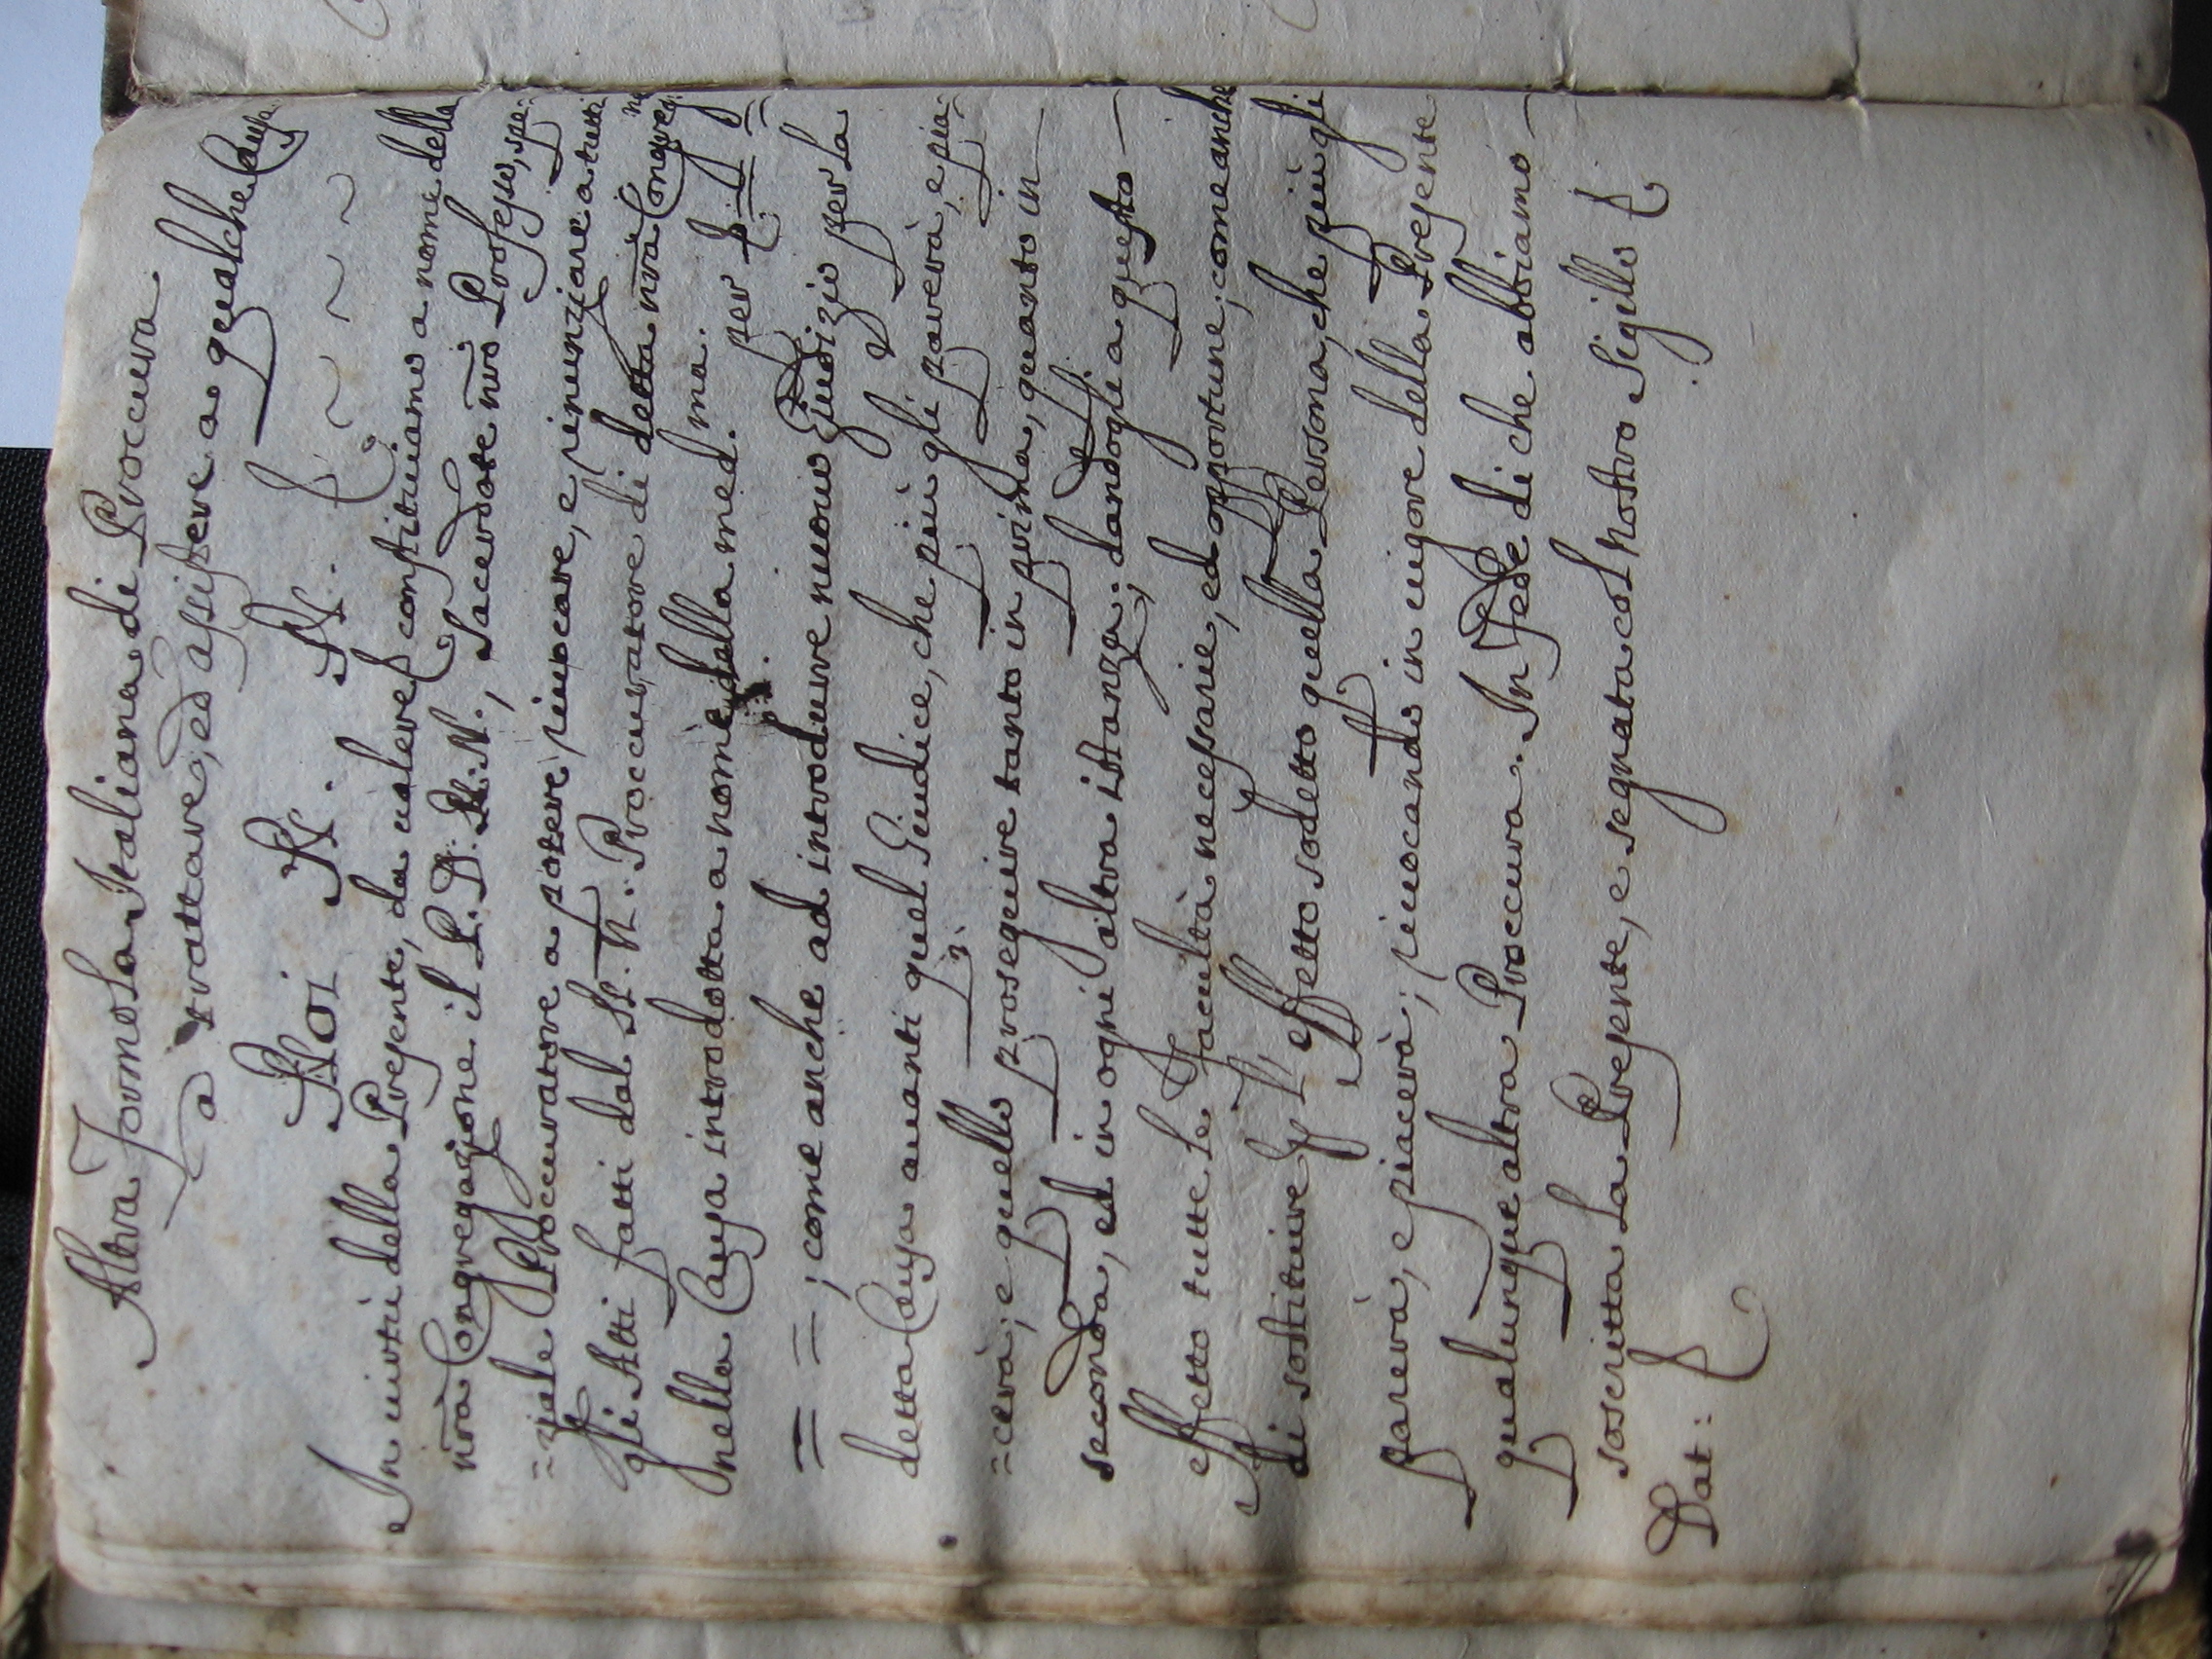 Altra Formola Italiana di Proccura
a trattare, ed assistere a qualche Causa
Noi N. N.
In virtù della Presente, da valere &c constituiamo a nome della
nrā Congregazione il P. D. N. N., Sacerdote nrō Professo, spe:
=ziale Proccuratore a potere rivocare, e rinunziare a tutti
gli Atti fatti dal Sr. N. Proccuratore di detta nrā Congreg:ne
nella Causa introdotta a nome della med.ma per
= = ; come anche ad introdurre nuovo giudizio per la
detta Causa avanti quel Giudice, che più gli parerà, e pia:
=cerà; e quello proseguire tanto in prima, quanto in
seconda, ed in ogni altra istanza; dandogli a questo
effetto tutte le Facultà necessarie, ed opportune; come anche
di sostituire per l'effetto sodetto quella Persona, che più gli
parerà, e piacerà; rivocando in vigore della Presente
qualunque altra Proccura. In Fede di che abbiamo
soscritta la Presente, e segnata col Nostro Sigillo &c.
Dat: &c